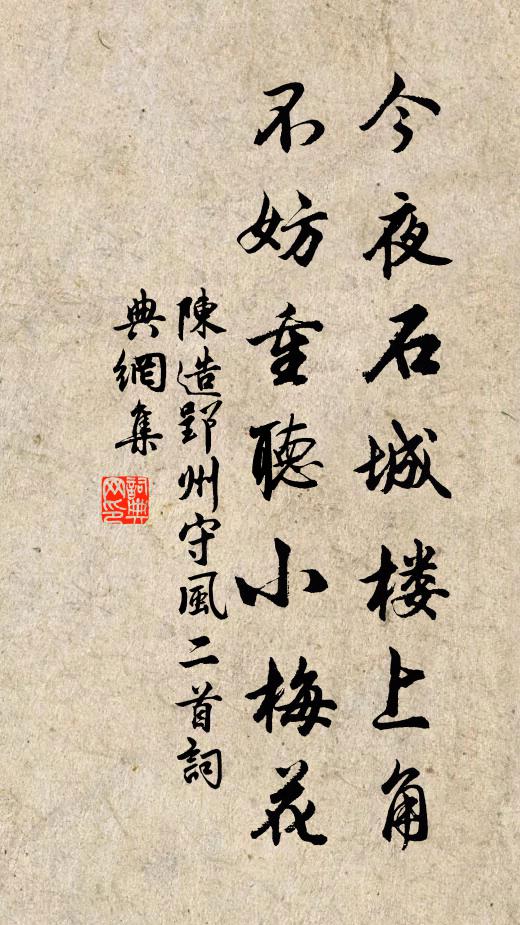 今夜石城楼上角
不妨重聽小梅花
陳造郢州守風二首詞
典網集
詞典
网印